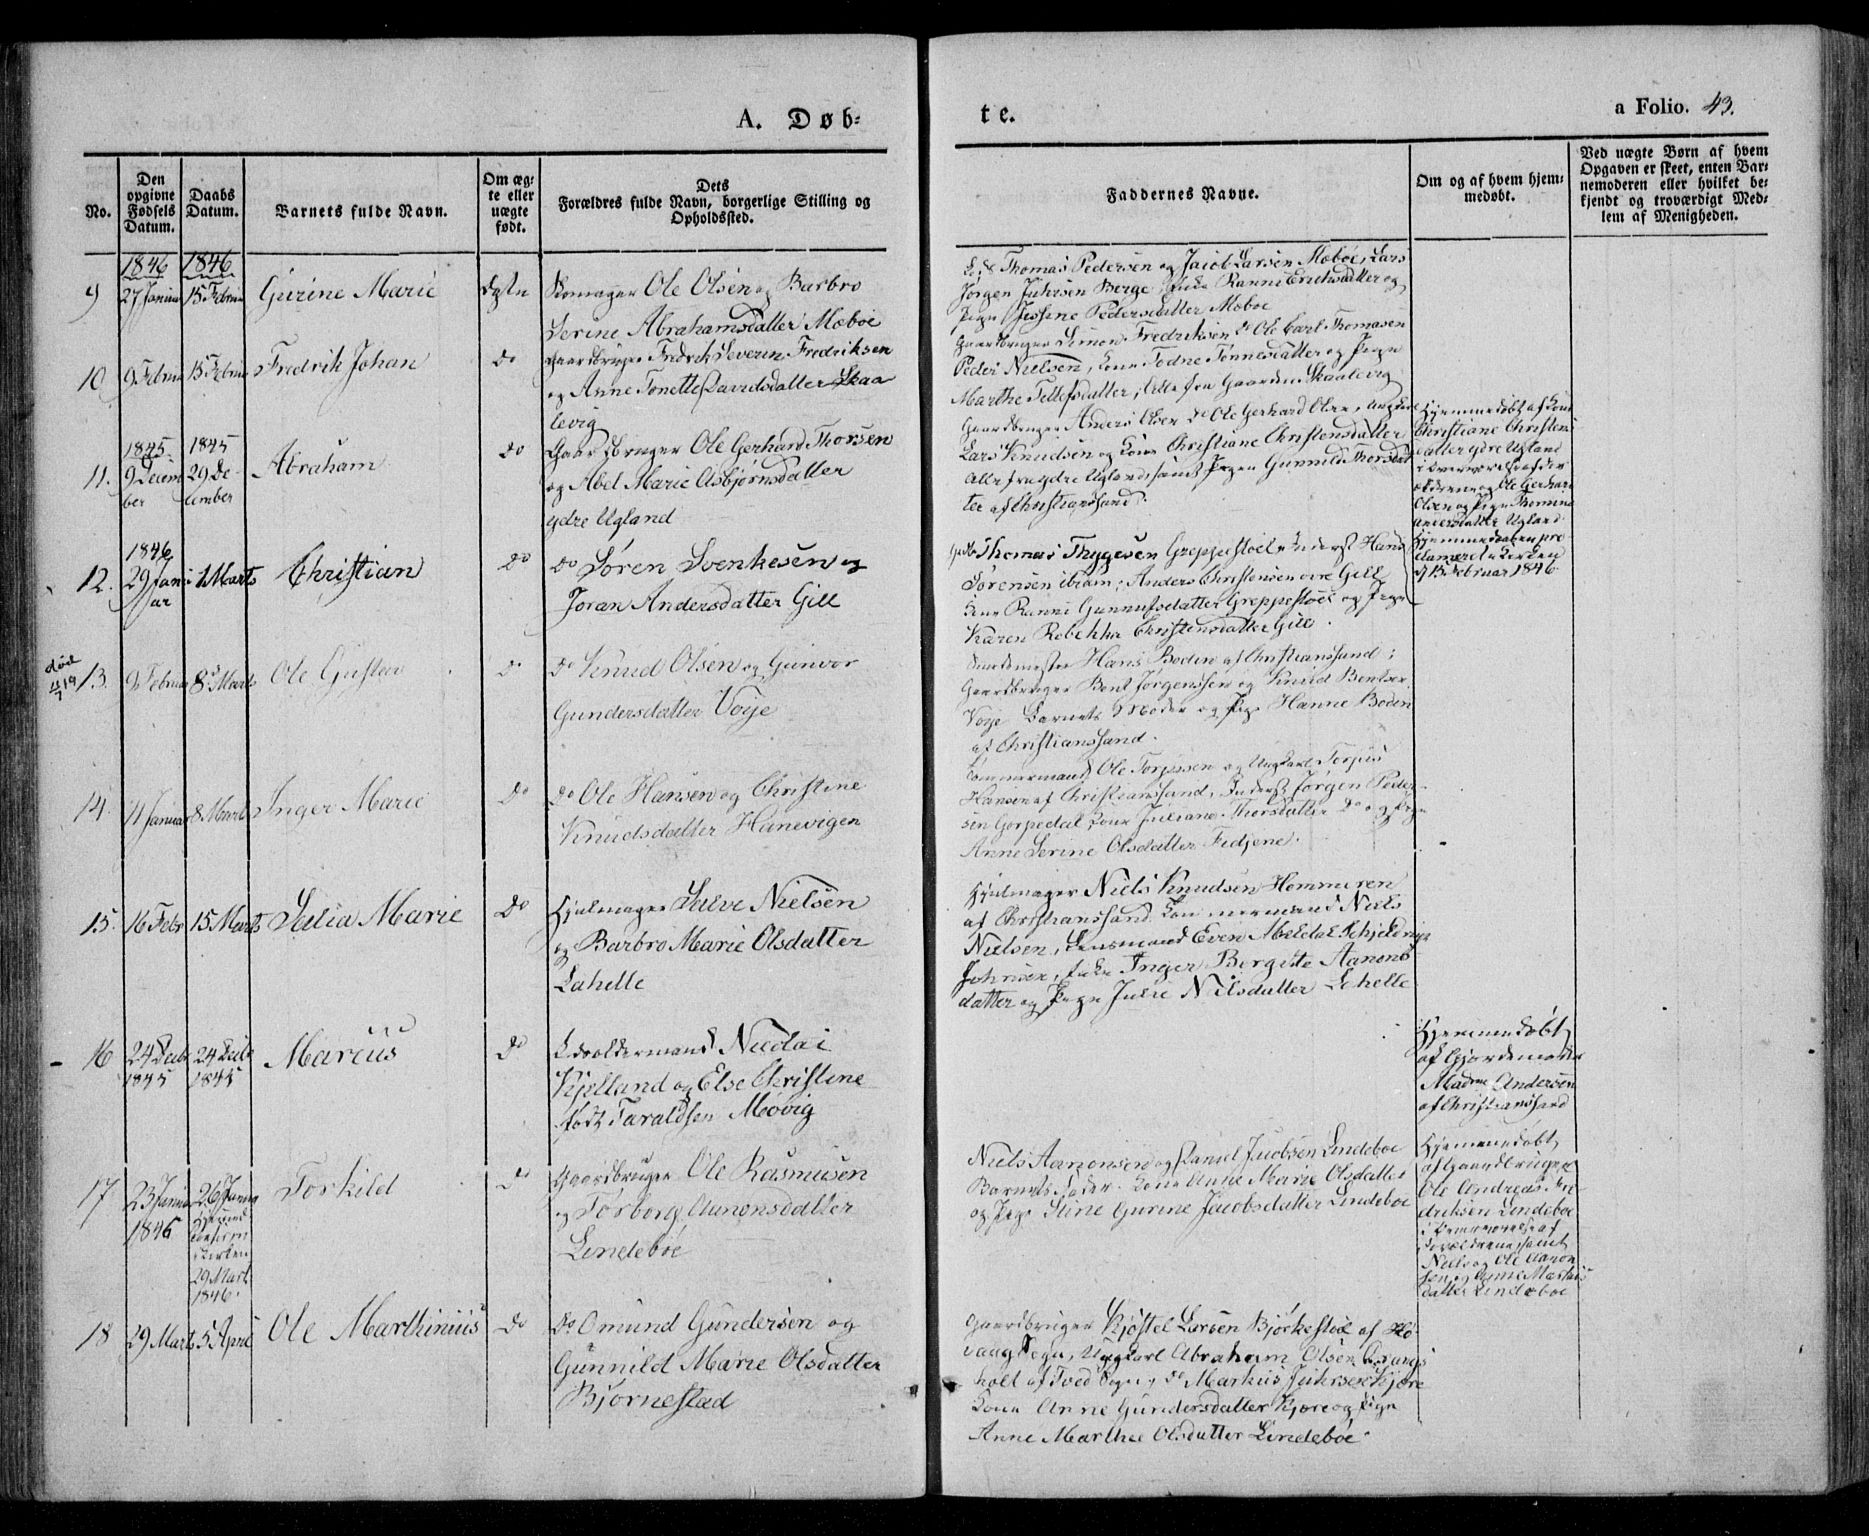 A. Døb-
te.
a Folio. 43.
No.
Den opgivne Fødsels Datum.
Daabs Datum.
Barnets fulde Navn.
Om ægte eller uægte født.
Dets
Forældres fulde Navn, borgerlige Stilling og
Opholdssted.
Faddernes Navne.
Om og af hvem hjem-
medøbt.
Ved uægte Børn af hvem
Opgaven er skeet, enten Bar-
nemoderen eller hvilket be-
kjendt og troværdigt Med-
lem af Menigheden.
1846 1846
9 27 Januar 15 Februar Gurine Marie Ægte Ole Olsen og Barbro
Serine Abrahamsdatter Mæboe
Thomas Pedersen og Jacob Larsen Mæboe, Lars
Jørgen Berge
Pige Pedersdatter Mæboe
10. 9 Februar 15 Februar Fredrik Johan Do Gaardbruger Fredrik Severin Fredriksen
og Anne Tonette Davidsdatter Skaa
levig
Gaardbruger Simon Fredriksen Do Ole Carl Thomasen
Peder Nielsen, Kone Todne Tønnesdatter og Pige
Marthe Tellefsdatter, Alle fra Gaarden Skaalevig
1845 1845
11. 9 Decem
ber
29 De-
cember
Abraham Do Gaardbruger Ole Gerhard Thorsen
og Abel Marie Asbjørnsdatter
ydre Ugland
Gaardbruger Anders Olsen Do Ole Gerhard Olsen,
Lars Knudsen og Kone Christiane Christensdatter
Alle fra ydre Ugland, samt Pigen Gunnild Thorsdat
ter af Christianssand.
Hjemmedøbt af Kone
Christiane Christens
datter ydre Ugland
i Overværelse af For
ældrene og Ole Gerhard
Olsen og Pige
Andersdatter Ugland.
Hjemmedaaben pro
clameret i Kirken
d 15 Februar 1846.
1846
12. 29 Janu
ar
1 Marts Christian Do Do Søren Svenkesen og
Joran Andersdatter Gill
Thomas Thygesen Greppestøl, Inderst Hans
Sørensen ibidm, Anders Christensen Gill
Kone Ranni Gunnufsdatter Greppestøl og Pige
Karen Rebekka Christensdatter Gill.
død
11/7 19
13. 9 Februar 8 Marts Ole Gustav Do Do Knud Olsen og Gunvor
Gundersdatter Voje
Hans Boden af Christianssand;
Gaardbruger Bent Jørgenssen og Knud Bentsen
Voje Barnets Moder og Pige Hanne Boden
af Christianssand.
14. 11 Januar 8 Marts Inger Marie Do Do Ole Hansen og Christine
Knudsdatter Hanevigen
Tømmermand Ole Torjusen og Ungkarl Torjus
Hansen af Christianssand, Inderst Jørgen Peder-
sen Kone Juliane Thorsdatter Do og Pige
Anne Serine Olsdatter Fidjene.
15. 16 Febr 15 Marts Salia Marie Do Hjulmager Salve Nielsen
og Barbro Marie Olsdatter
Lahelle
Hjulmager Niels Knudsen Hommeren
af Christianssand Tømmermand Niels
Nielsen, Lensmand Even
Johnsen, Inger Bergitte Aanons
datter og Pige Julie Nilsdatter Lahelle
16 24 Decbr
1845
24 Decbr
1845
Marcus Do Nicolai
Kjelland og Else Christine
født Taraldsen Møvig
Hjemmedøbt
af Gjordemoder
Madme Andersen
af Christianssand
17 23 Januar
1846
26 Januar
Hjemmed
Kirken
29 Mart
1846.
Torkild Do Gaardbruger Ole Rasmusen
og Torborg Aanonsdatter
Lindeboe
Niels Aanonsen og Daniel Jacobsen Lindeboe
Barnets Fader. Kone Anne Marie Olsdatter
og Pige Stine Gurine Jacobsdatter Lindeboe
Hjemmedøbt
af Gaardbruger
Ole Andreas Fre-
driksen Lindeboe
i Overværelse af
Forældrene, samt
Niels og Ole Aanon
sen og Anne
datter Lindeboe
18 29 Marts 5 April Ole Marthinius Do Do Omund Gundersen og
Gunnild Marie Olsdatter
Bjørnestad
Gaardbruger Kjøstel Larsen Bjørkestøl af Hø-
vaag Sogn, Ungkarl Abraham Olsen
holt af Tved Sogn, Do Markus Kjære
Kone Anne Gundersdatter Kjære og Pige
Anne Marthea Olsdatter Lindeboe.